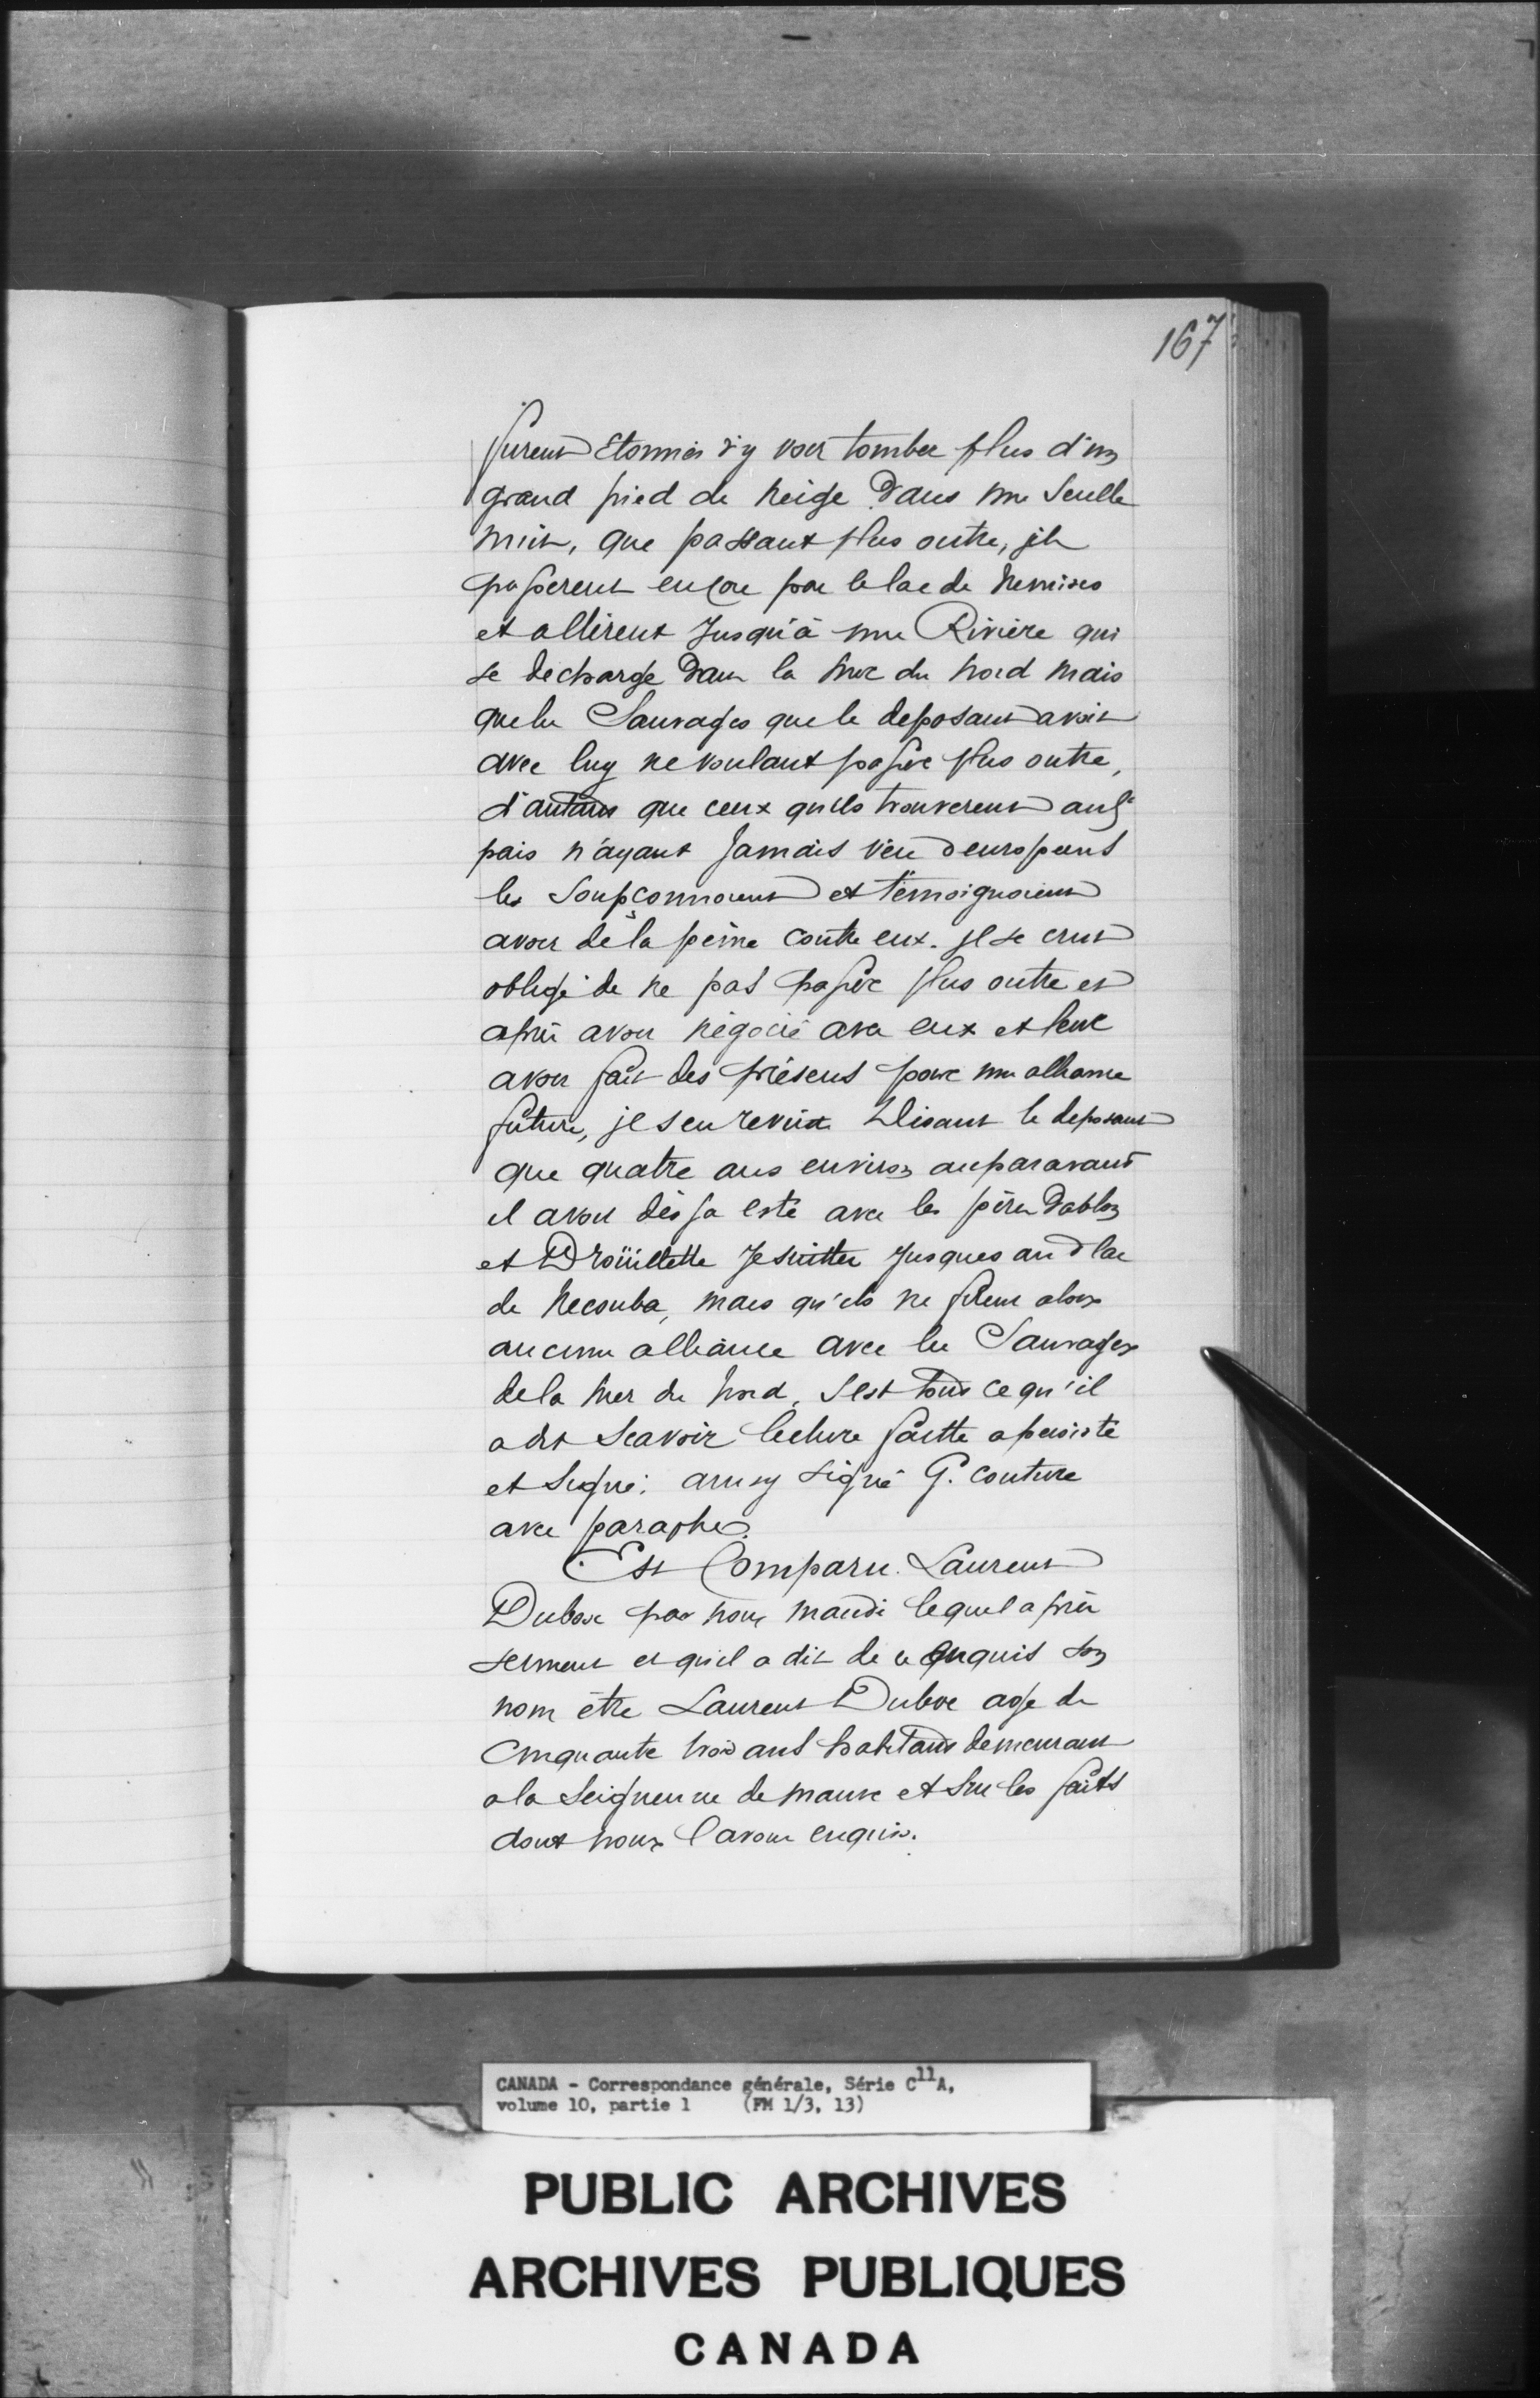 167
furent Etonnés d'y voir tomber plus d'un
grand pied de neige Dans une Seulle
nuit, que passant plus outre, ils
passerent encore par le lac de Nemisco
et allèrent Jusqu'à une Rivière qui
se decharge Dans la mer du nord mais
que les Sauvages que le deposant avoit
avec luy ne voulant passer plus outre,
d'autant que ceux quils trouverent aud
pais n'ayant Jamais veu deuropeens
les Soupçonnoient et témoignoient
avoir de la peine contre eux. Il se crut
obligé de ne pas passer plus outre et
après avoir négocié avec eux et leur
avoir fait des présens pour une alliance
future, il s'en revint Disant le deposant
que quatre ans environ auparavant
il avoit dès ja esté avec les pères Dablon
et Droüillette Jesuittes Jusques au d lac
de Necouba, mais qu'ils ne firent alors
aucune alliance avec les Sauvages
de la Mer du Nord, S'est tous ce qu'il
a dit Scavoir lecture faitte a persisté
et Signé: ainsy Signé G. Couture
avec paraphe.
Est Comparu Laurent
Dubox par nous mandé lequel après
serment et qu'il a dit de ce enquis son
nom être Laurent Duboc age de
Cinquante trois ans habitant demeurant
a la Seigneurie de maure et Sur les faits
dont nous l'avons enquis.
CANADA - Correspondance générale, Série C11A,
volume 10, partie 1 (FM 1/3, 13)
PUBLIC ARCHIVES
ARCHIVES PUBLIQUES
CANADA